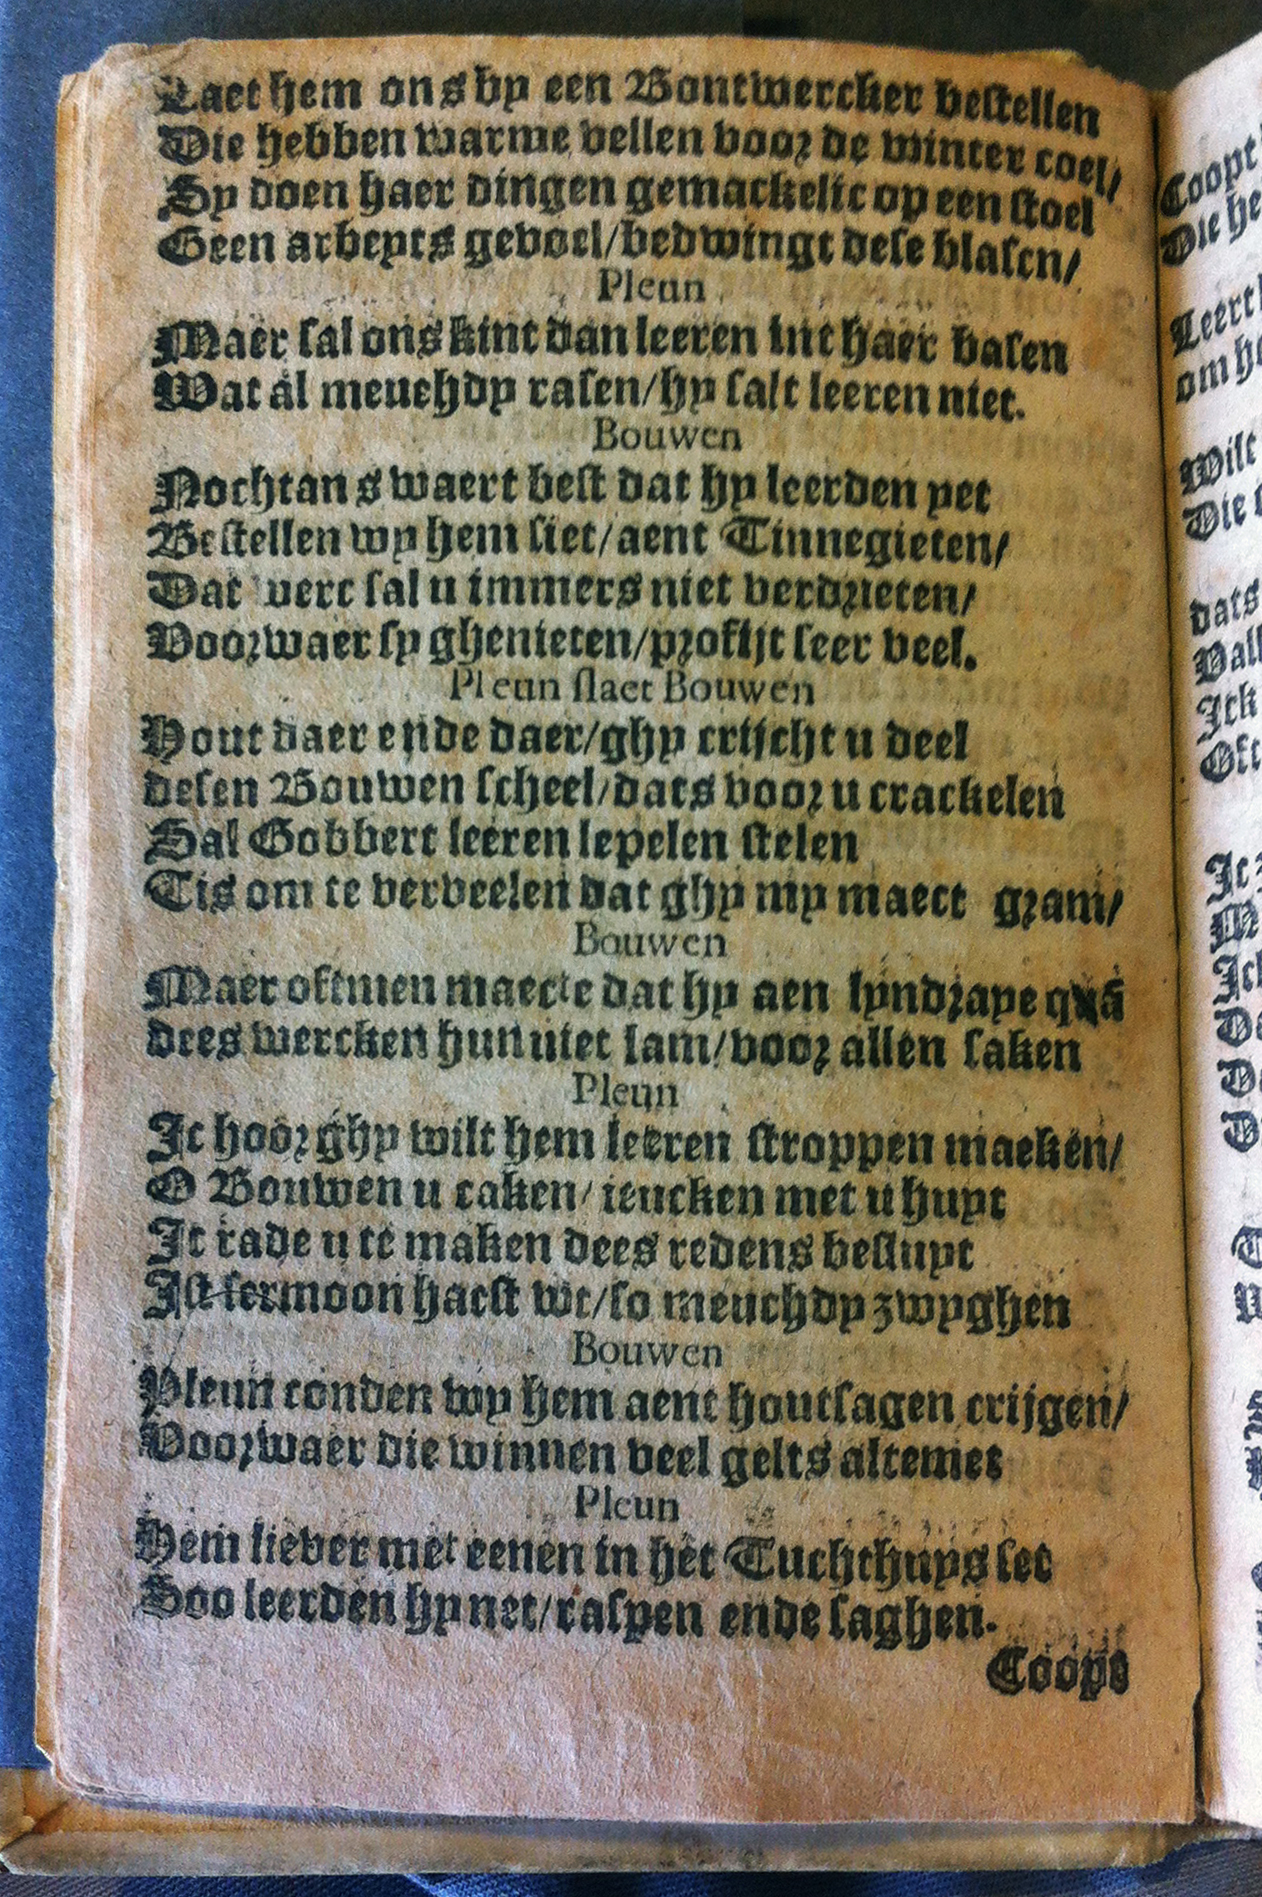 Laet hem ons by een Bontwercker bestellen
Die hebben warme vellen voor de winter coel/
Sy doen haer dingen gemackelic op een stoel
Geen arbeyts gevoel/bedwingt dese blasen/
Pleun
Maer sal ons kint dan leeren int haer basen
Wat al meuchdy rasen/hy salt leeren niet.
Bouwen
Nochtans waert best dat hy leerden yet
Bestellen wy hem siet/aent Tinnegieten/
Dat werc sal u immers niet verdrieten/
Voorwaer sy ghenieten/profijt seer veel.
Pleun slaet Bouwen
Hout daer ende daer/ghy crijcht u deel
desen Bouwen scheel/dats voor u crackelen
Sal Gobbert leeren lepelen stelen
Tis om te verveelen dat ghy my maect gram/
Bouwen
Maer oftmen maecte dat hy aen lyndraye quā
dees wercken hun niet lam/voor allen saken
Pleun
Ic hoor ghy wilt hem leeren stroppen maeken/
O Bouwen u caken/ ieucken met u huyt
Ic rade u te maken dees redens besluyt
Ist sermoon haest wt/so meuchdy zwyghen
Bouwen
Pleun conden wy hem aent houtsagen crijgen/
Voorwaer die winnen veel gelts altemet
Pleun
Hem liever met eenen in het Tuchthuys set
Soo leerden hy net/raspen ende saghen.
Coopt
Coopt
Die he
Leert
om ho
Wilt
Die
dats
Vall
Ick
Oft